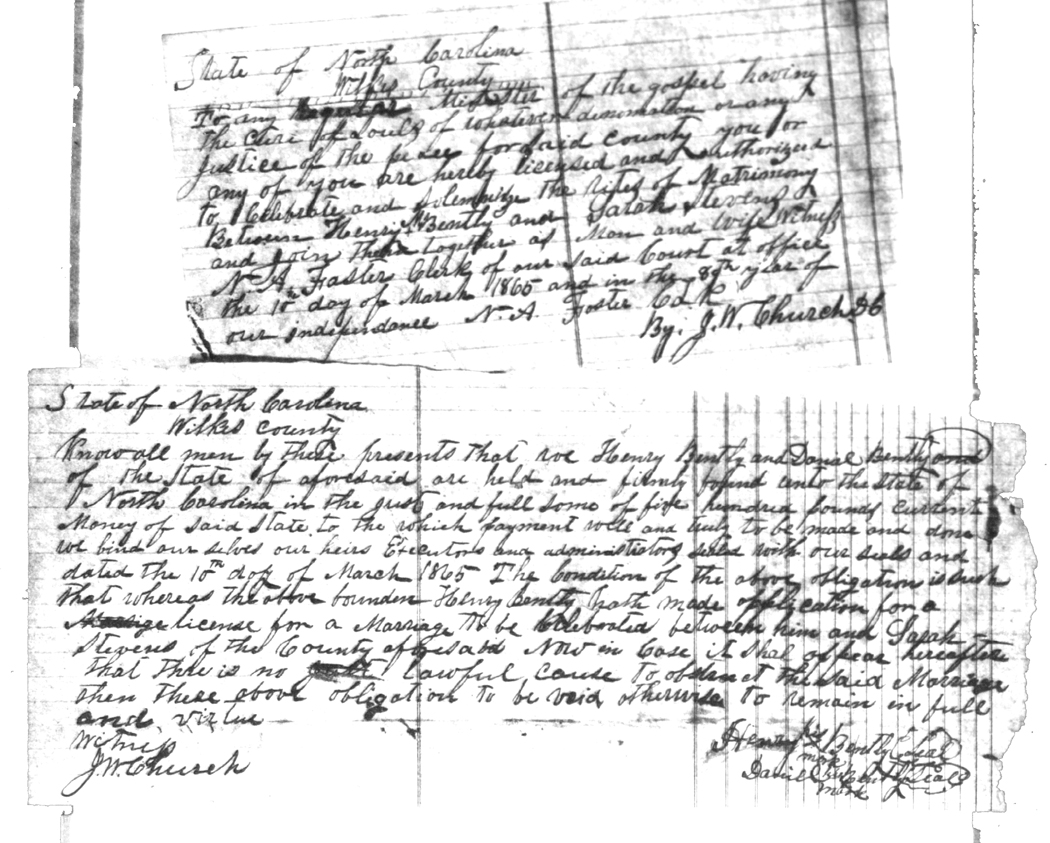 State of North Carolina
Wilkes County
To any Regular Minister of the gospel having
the Cure of Souls of whatever denomination or any
Justice of the peace for said county you or
any of you are hereby licensed and authorized
to Celebrate and Solemnize the rites of Matrimony
Between Henry Bently and Sarah Stevens
and join them together as Man and Wife Witness
N. A. Foster Clerk of our said Court at office
the 10th day of March 1865 and in the 89th year of
our independance N. A. Foster C C
By. J. W. Church DC
State of North Carolina
Wilkes County
Know all men by these presents that we Henry Bently and Danial Bently and
of the State of aforesaid are held and firmly bound unto the State of
North Carolina in the just and full some of five hundred pounds current
Money of said State to the which payment well and truly to be made and don
we bind our selves our heirs Executors and administrators seled with our seels and
dated the 10th day of March 1865 The Condition of the above obligation is such
that whereas the above bounden Henry Bently hath made application for a
license for a Marriage to be Celebrated between him and Sarah
Stevens of the County aforesaid Now in Case it shal appear hereafter
that there is no lawful cause to obstruct the said Marriage
then these above obligation to be void otherwise to remain in full
and virtue
Witness
J. W. Church
Henry his Bently Seal
mark
Daniel his Bently Seal
mark